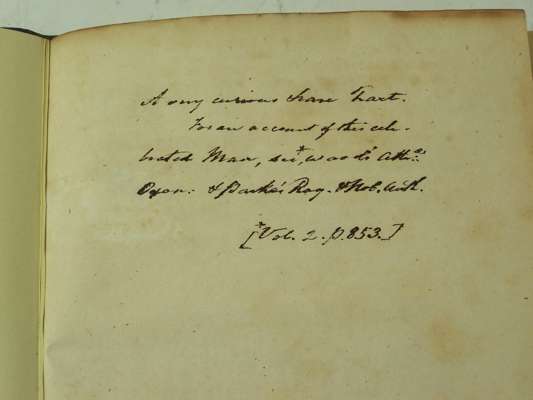 A very curious & rare Tract.
For an account of this cele-
brated Man, see *, Wood's Ath:
Oxon: & Park's Roy. & Nob. Auth.
[*Vol. 2. p. 853.]